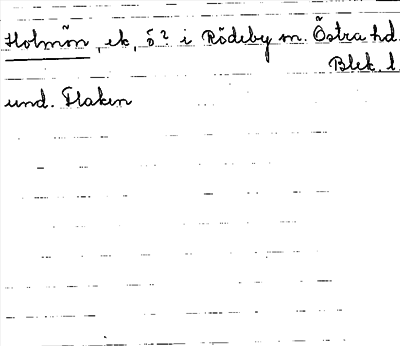 Holmön, ek, ö? i Rödeby sn. Östra hd.
Blek. l.
und. Flaken